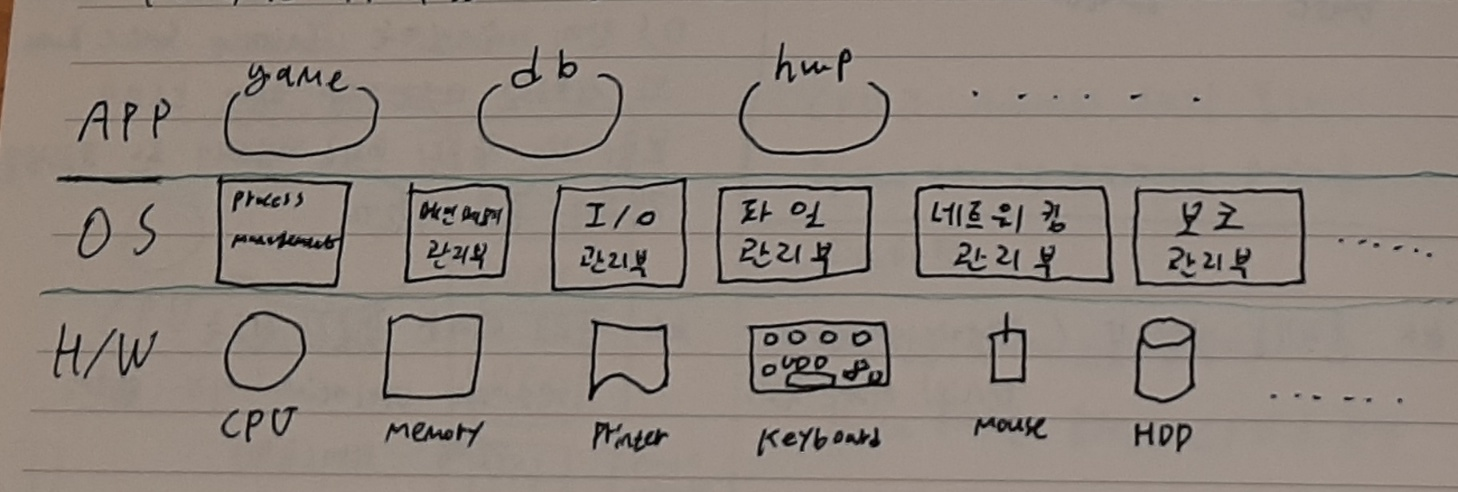 game db hwp ......
APP
process
management
메인 메모리
관리부
I/O
관리부
파일
관리부
네트워킹
관리부
보호
관리부
......
OS
H/W
CPU
Memory
Printer
Keyboard
Mouse
HDD
......